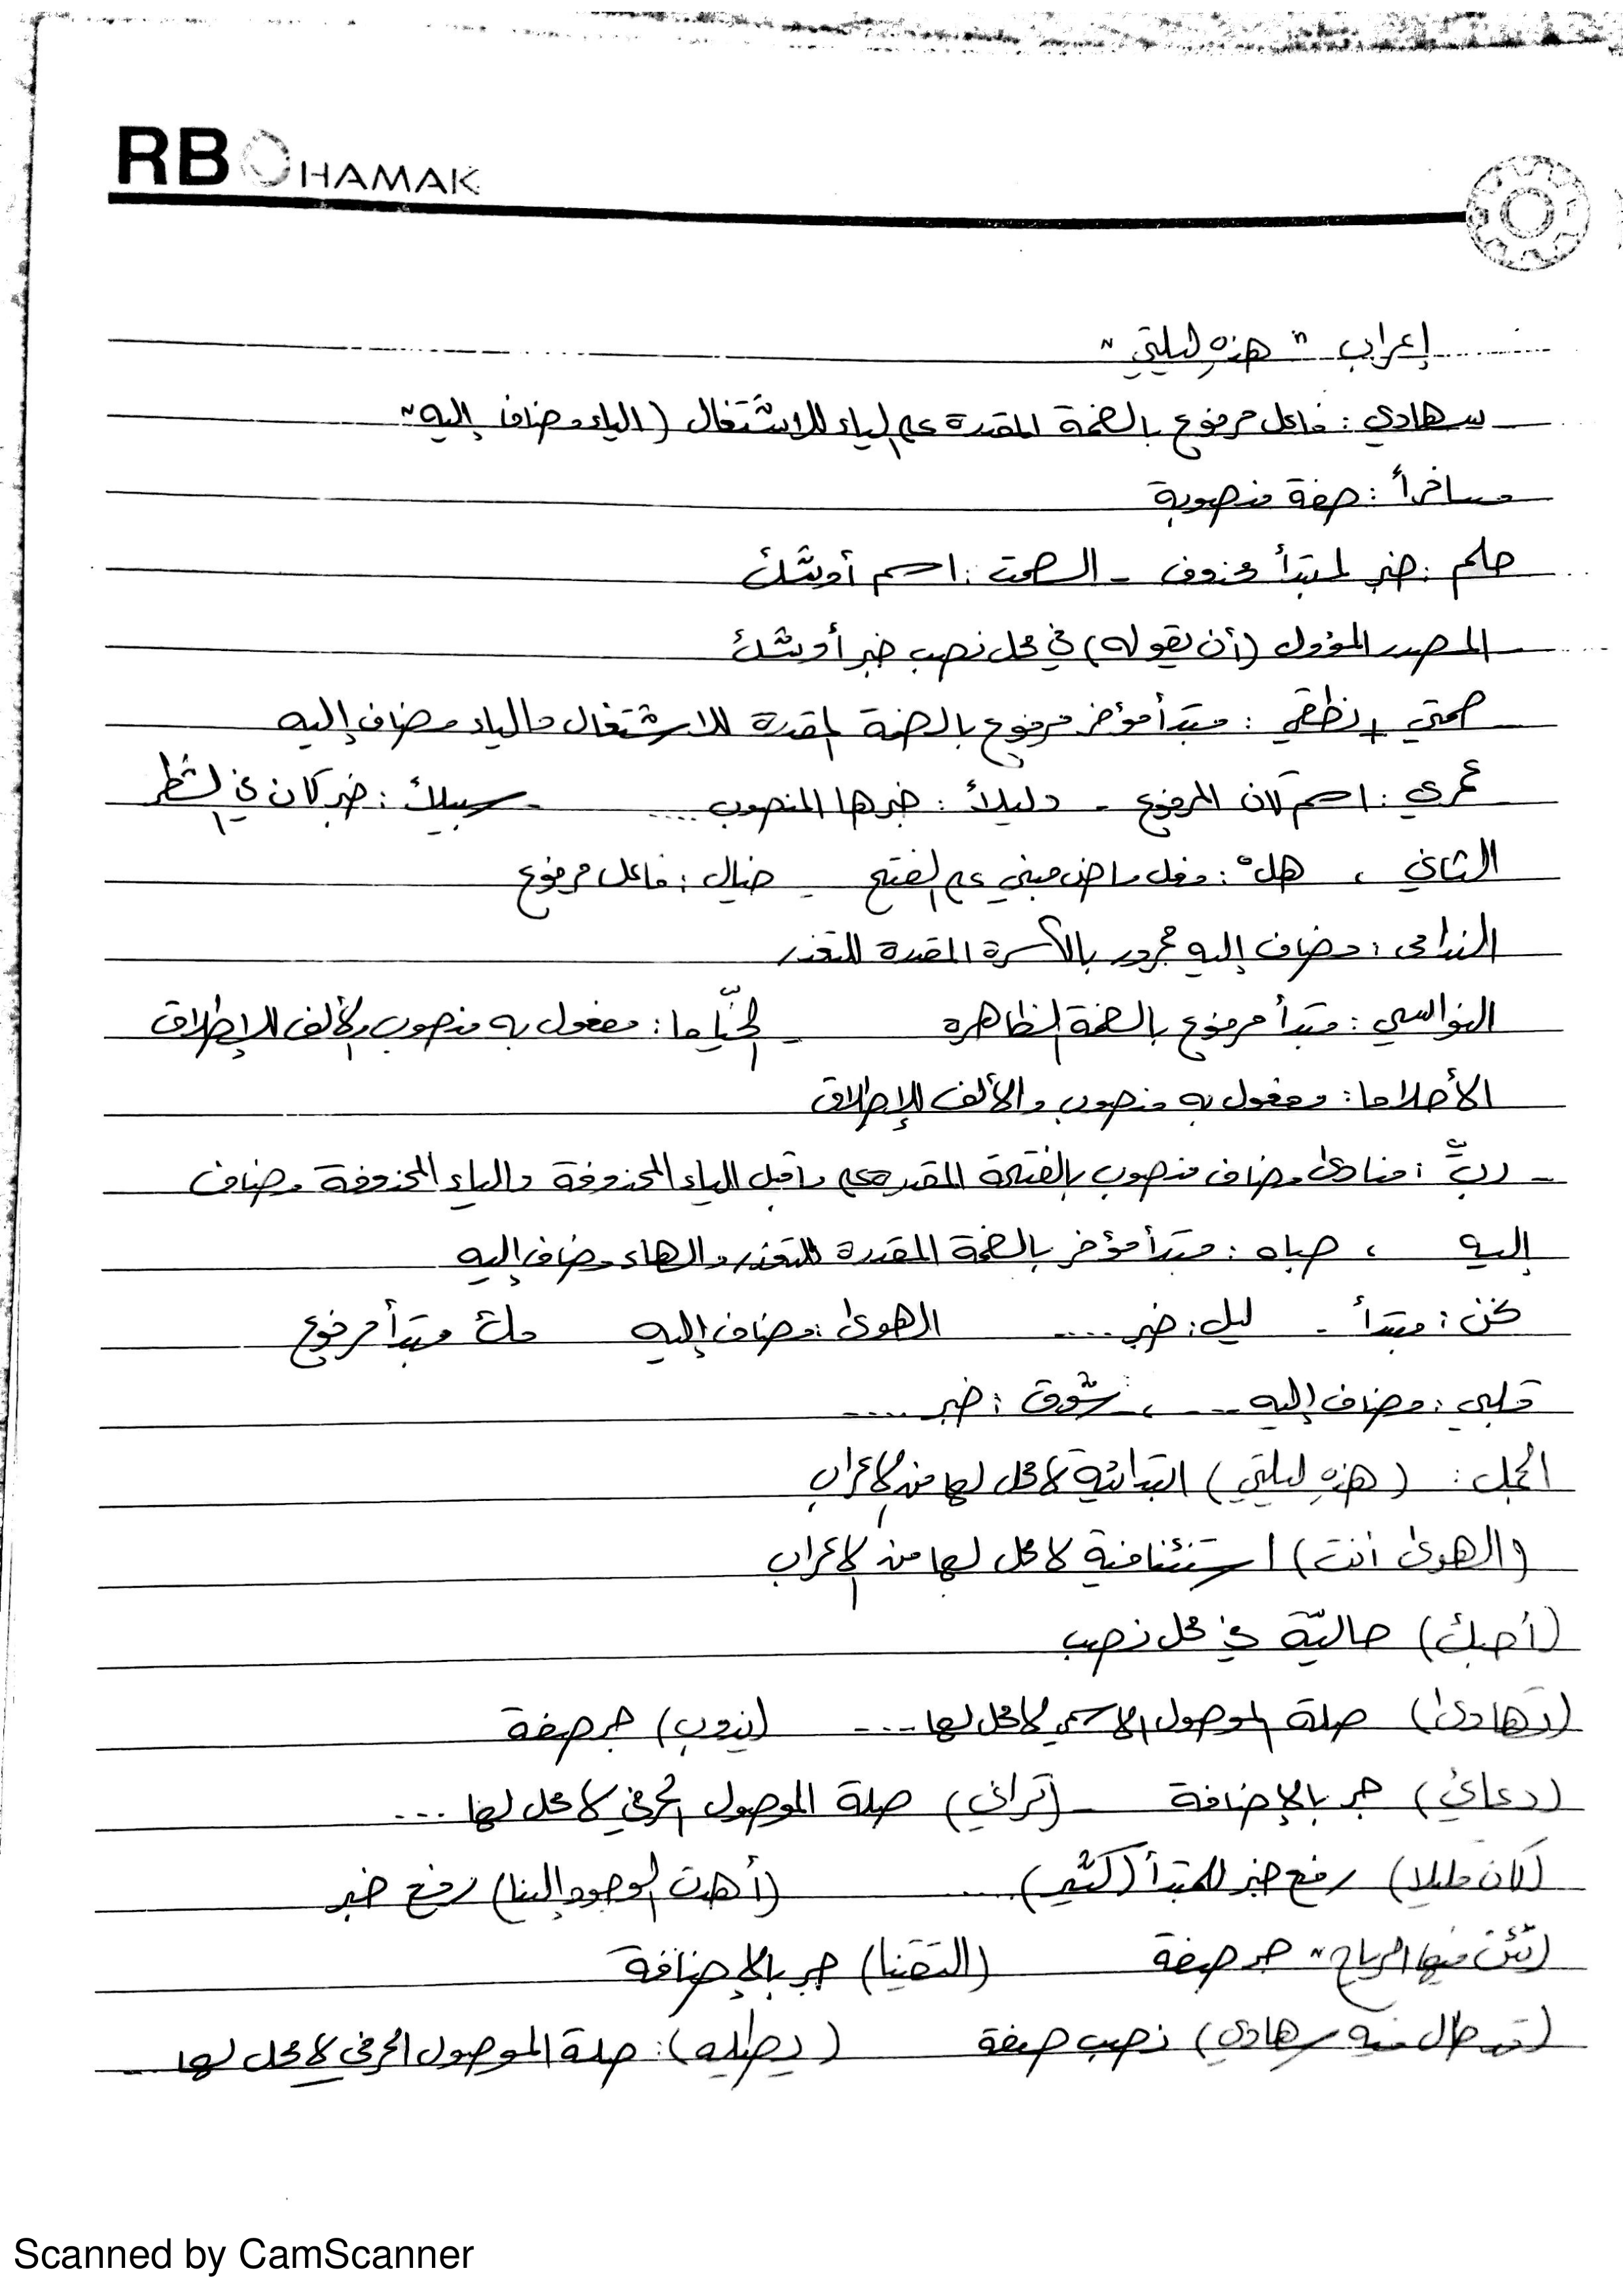 RB HAMAK
إعراب "هذهِ ليلتي"
سهادي: فاعل مرفوع بالضمة المقدرة على الياء للاشتغال (الياء مضاف إليه"
مسافراً: صفة منصوبة
حلم: خبر لمبتدأ محذوف - الصمت: اسم أوشك
المصدر المؤول (أن يقوله) في محل نصب خبر أوشك
صمتي + نطقي: مبتدأ مؤخر مرفوع بالضمة المقدرة للاشتغال والياء مضاف إليه
عمري: اسم كان المرفوع - دليلاً: خبرها المنصوب .... - سبيلك: خبر كان في الشطر
الثاني ، هلّ: فعل ماضٍ مبني على الفتح - خيال: فاعل مرفوع
الندامى: مضاف إليه مجرور بالكسرة المقدرة للتعذر
النواسي: مبتدأ مرفوع بالضمة الظاهرة - الخيّاما: مفعول به منصوب والألف للإطلاق
الأحلاما: مفعول به منصوب والألف للإطلاق
- ربِّ: منادى مضاف منصوب بالفتحة المقدرة على ماقبل الياء المحذوفة والياء المحذوفة مضاف
إليه ، صباه: مبتدأ مؤخر بالضمة المقدرة للتعذر والهاء مضاف إليه
نحن: مبتدأ - ليل: خبر .... الهوى: مضاف إليه ملء مبتدأ مرفوع
قلبي: مضاف إليه --- ، شوق: خبر ....
الجمل: (هذهِ ليلتي) ابتدائية لا محل لها من الإعراب
(الهوى أنت) استئنافية لا محل لها من الإعراب
(أحبك) حاليّة في محل نصب
(تهادى) صلة الموصول الاسمي لا محل لها .... (يذوب) جر صفة
(دعاني) جر بالإضافة - (تراني) صلة الموصول الحرفي لا محل لها ...
(كان قليلا) رفع خبر للمبتدأ (كثير) .... (أهدت الوجود إلينا) رفع خبر
(تئن فيها الرياح" جر صفة (التقينا) جر بالإضافة
(قد طال فيه سهادي) نصب صفة (يصليه): صلة الموصول الحرفي لا محل لها ...
Scanned by CamScanner